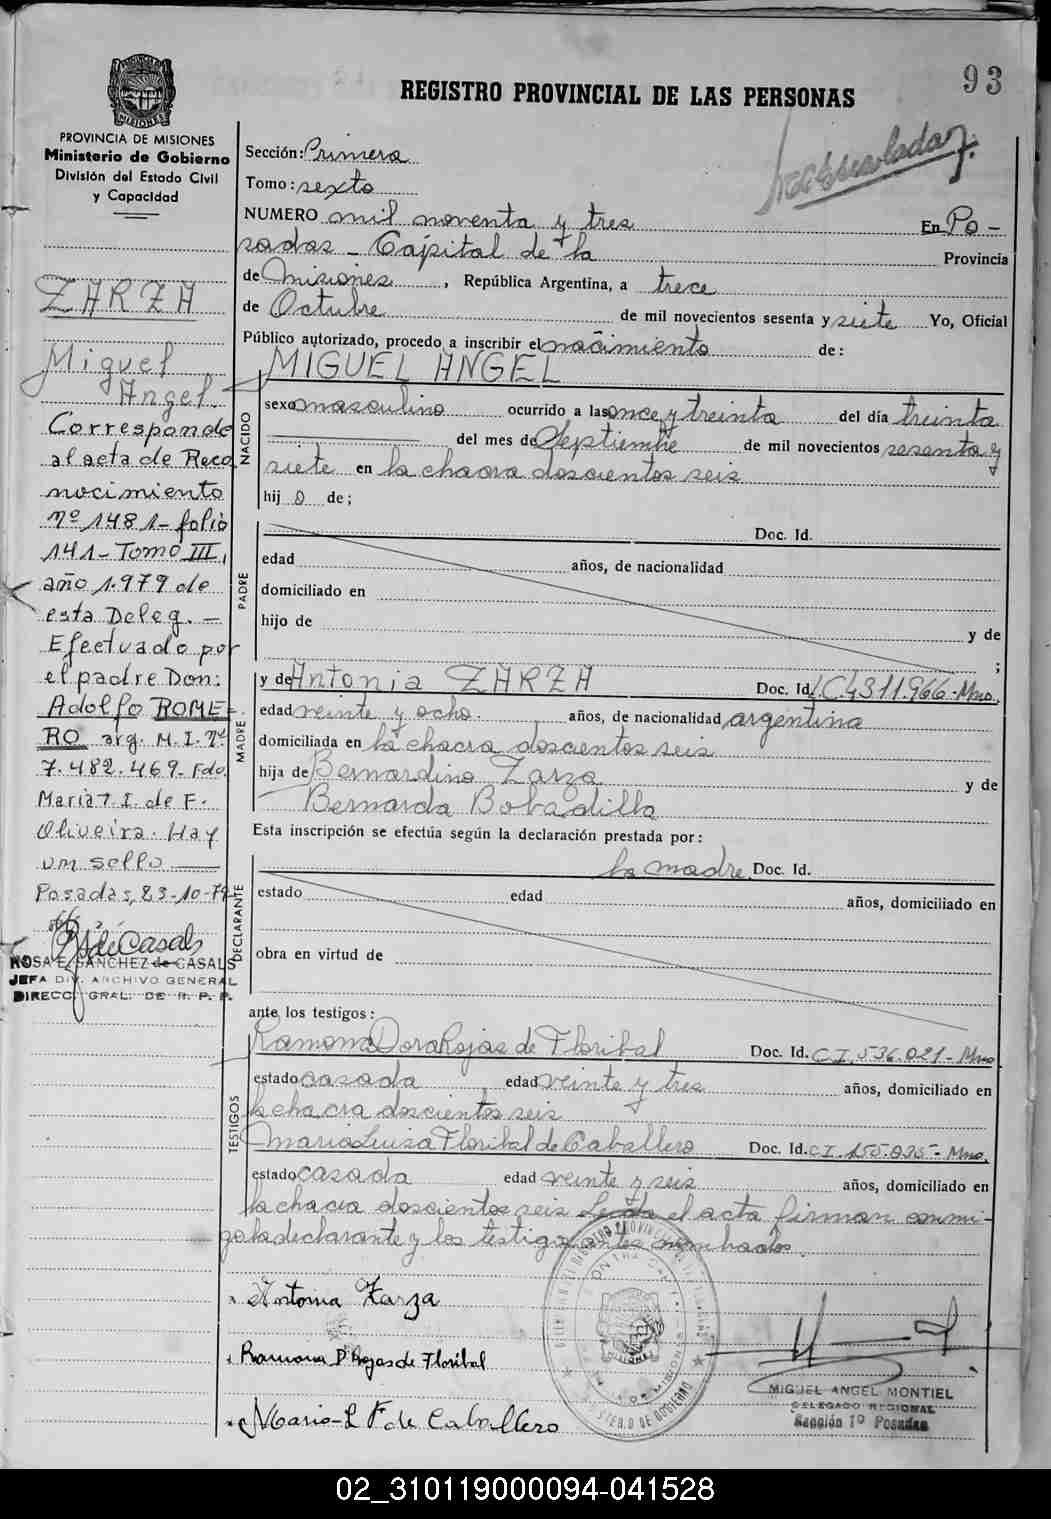 93
REGISTRO PROVINCIAL DE LAS PERSONAS
PROVINCIA DE MISIONES
Ministerio de Gobierno
División del Estado Civil
y Capacidad
ZARZA
Miguel
Angel.
Corresponde
al acta de Reco
nocimiento
nº 1481-folio
141-Tomo III,
año 1.979 de
esta Deleg. —
Efectuado por
el padre Don:
Adolfo ROME=
RO arg. M.I. Nº
7.482.469. Fdo.
Maria T. I. de F.
Oliveira. Hay
um sello
Posadas, 23-10-79
ROSA E. SANCHEZ de CASALS
JEFA DIV. ARCHIVO GENERAL
DIRECC. GRAL. DE R. P. P.
Sección: Primera
Tomo: sexto
NUMERO mil noventa y tres En Po-
sadas - Capital de la Provincia
de Misiones, República Argentina, a trece
de Octubre de mil novecientos sesenta y siete Yo, Oficial
Público autorizado, procedo a inscribir el nacimiento de:
MIGUEL ANGEL
NACIDO
sexo masculino ocurrido a las once y treinta del día treinta
del mes de Septiembre de mil novecientos sesenta y
siete en la chacra doscientos seis
hij o de;
PADRE
Doc. Id.
edad años, de nacionalidad
domiciliado en
hijo de y de
;
MADRE
y de Antonia ZARZA Doc. Id. C.4311.966-Mnes.
edad veinte y ocho. años, de nacionalidad argentina
domiciliada en la chacra doscientos seis
hija de Bernardino Zarza y de
Bernarda Bobadilla
Esta inscripción se efectúa según la declaración prestada por:
DECLARANTE
la madre Doc. Id.
estado edad años, domiciliado en
obra en virtud de
ante los testigos:
TESTIGOS
Ramona Dora Rojas de Floribal Doc. Id. C.I. 536.021-Mnes
estado casada edad veinte y tres años, domiciliado en
la chacra doscientos seis
Maria Luisa Floribal de Caballero Doc. Id. C.I. 155.035-Mnes.
estado casada edad veinte y seis años, domiciliado en
la chacra doscientos seis Leida el acta firman conmi-
go la declarante y los testigos antes nombrados.
Antonia Zarza
Ramona D Rojas de Floribal
Maria-L F de Caballero
MISIONES
MIGUEL ANGEL MONTIEL
DELEGADO REGIONAL
Sección 1º Posadas
02_310119000094-041528